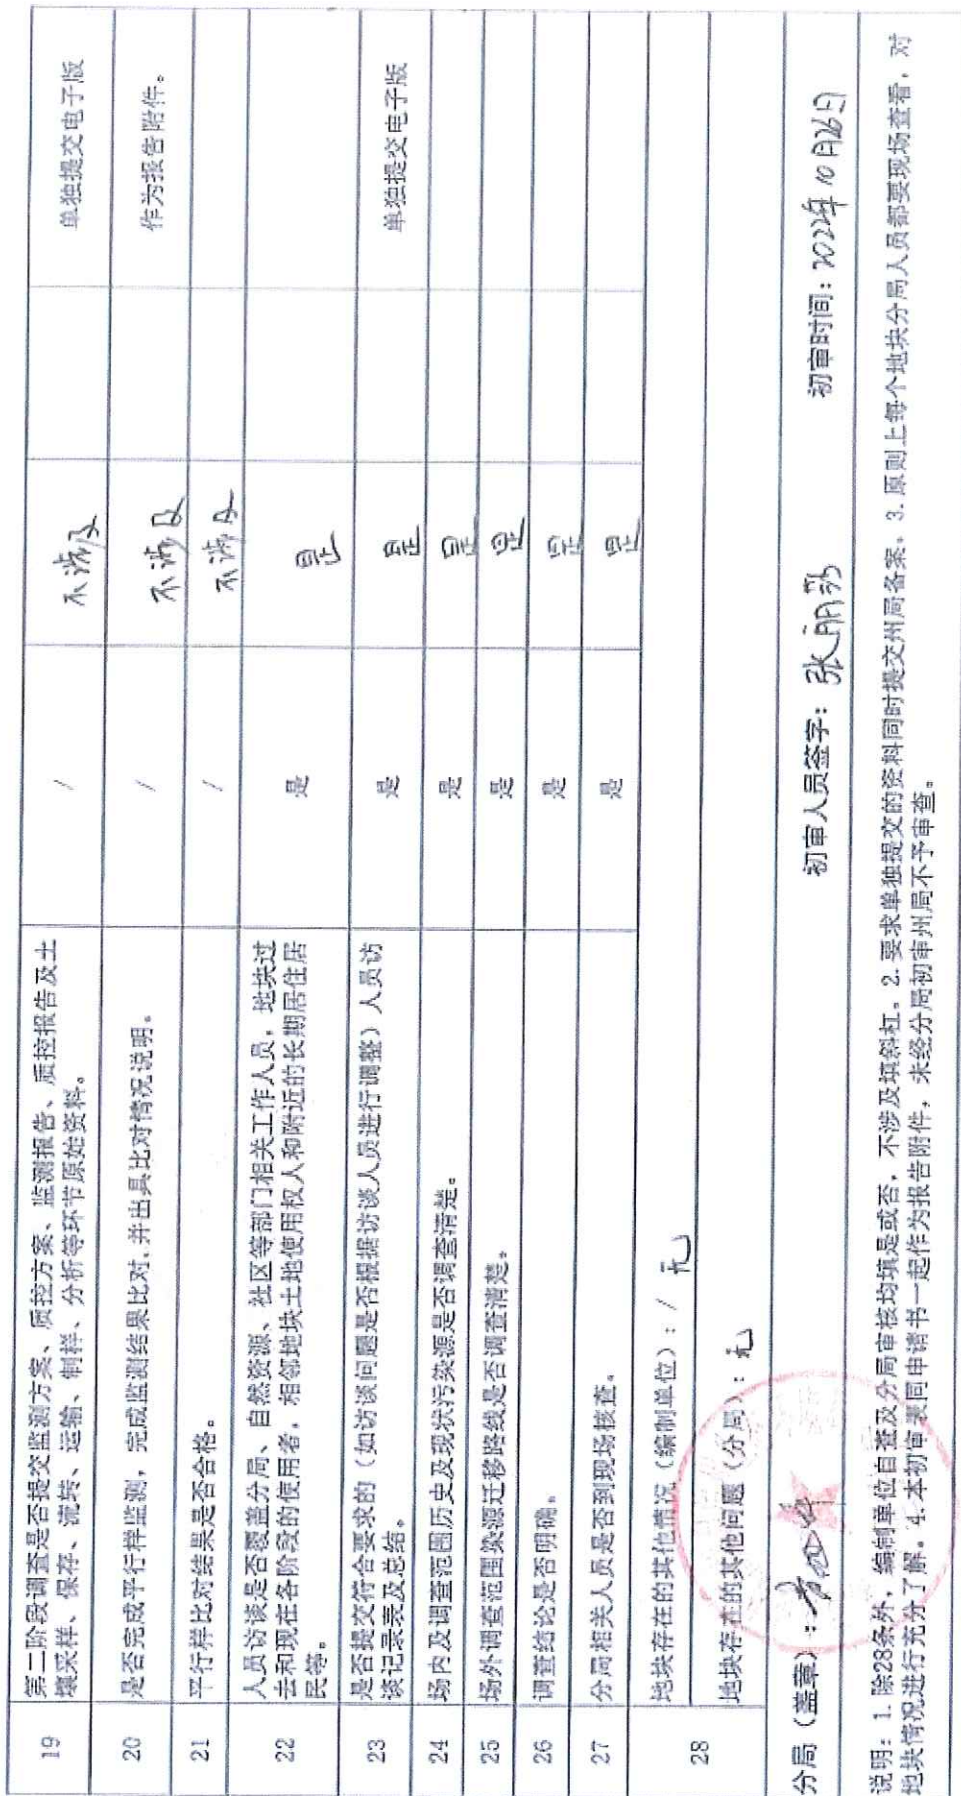 19 第二阶段调查是否提交监测方案、质控方案、监测报告、质控报告及土
壤采样、保存、流转、运输、制样、分析等环节原始资料。 / 不涉及 单独提交电子版
20 是否完成平行样监测，完成监测结果比对，并出具比对情况说明。 / 不涉及 作为报告附件。
21 平行样比对结果是否合格。 / 不涉及
22 人员访谈是否覆盖分局、自然资源、社区等部门相关工作人员，地块过
去和现在各阶段的使用者，相邻地块土地使用权人和附近的长期居住居
民等。 是 是
23 是否提交符合要求的（如访谈问题是否根据访谈人员进行调整）人员访
谈记录表及总结。 是 是 单独提交电子版
24 场内及调查范围历史及现状污染源是否调查清楚。 是 是
25 场外调查范围染源迁移路线是否调查清楚。 是 是
26 调查结论是否明确。 是 是
27 分局相关人员是否到现场核查。 是 是
28 地块存在的其他情况（编制单位）：/ 无
地块存在的其他问题（分局）：无
分局（盖章）： 初审人员签字：张丽彩 初审时间：2022年10月26日
说明：1. 除28条外，编制单位自查及分局审核均填是或否，不涉及填斜杠。2. 要求单独提交的资料同时提交州局备案。3. 原则上每个地块分局人员都要现场查看，对
地块情况进行充分了解。4. 本初审表同申请书一起作为报告附件，未经分局初审州局不予审查。